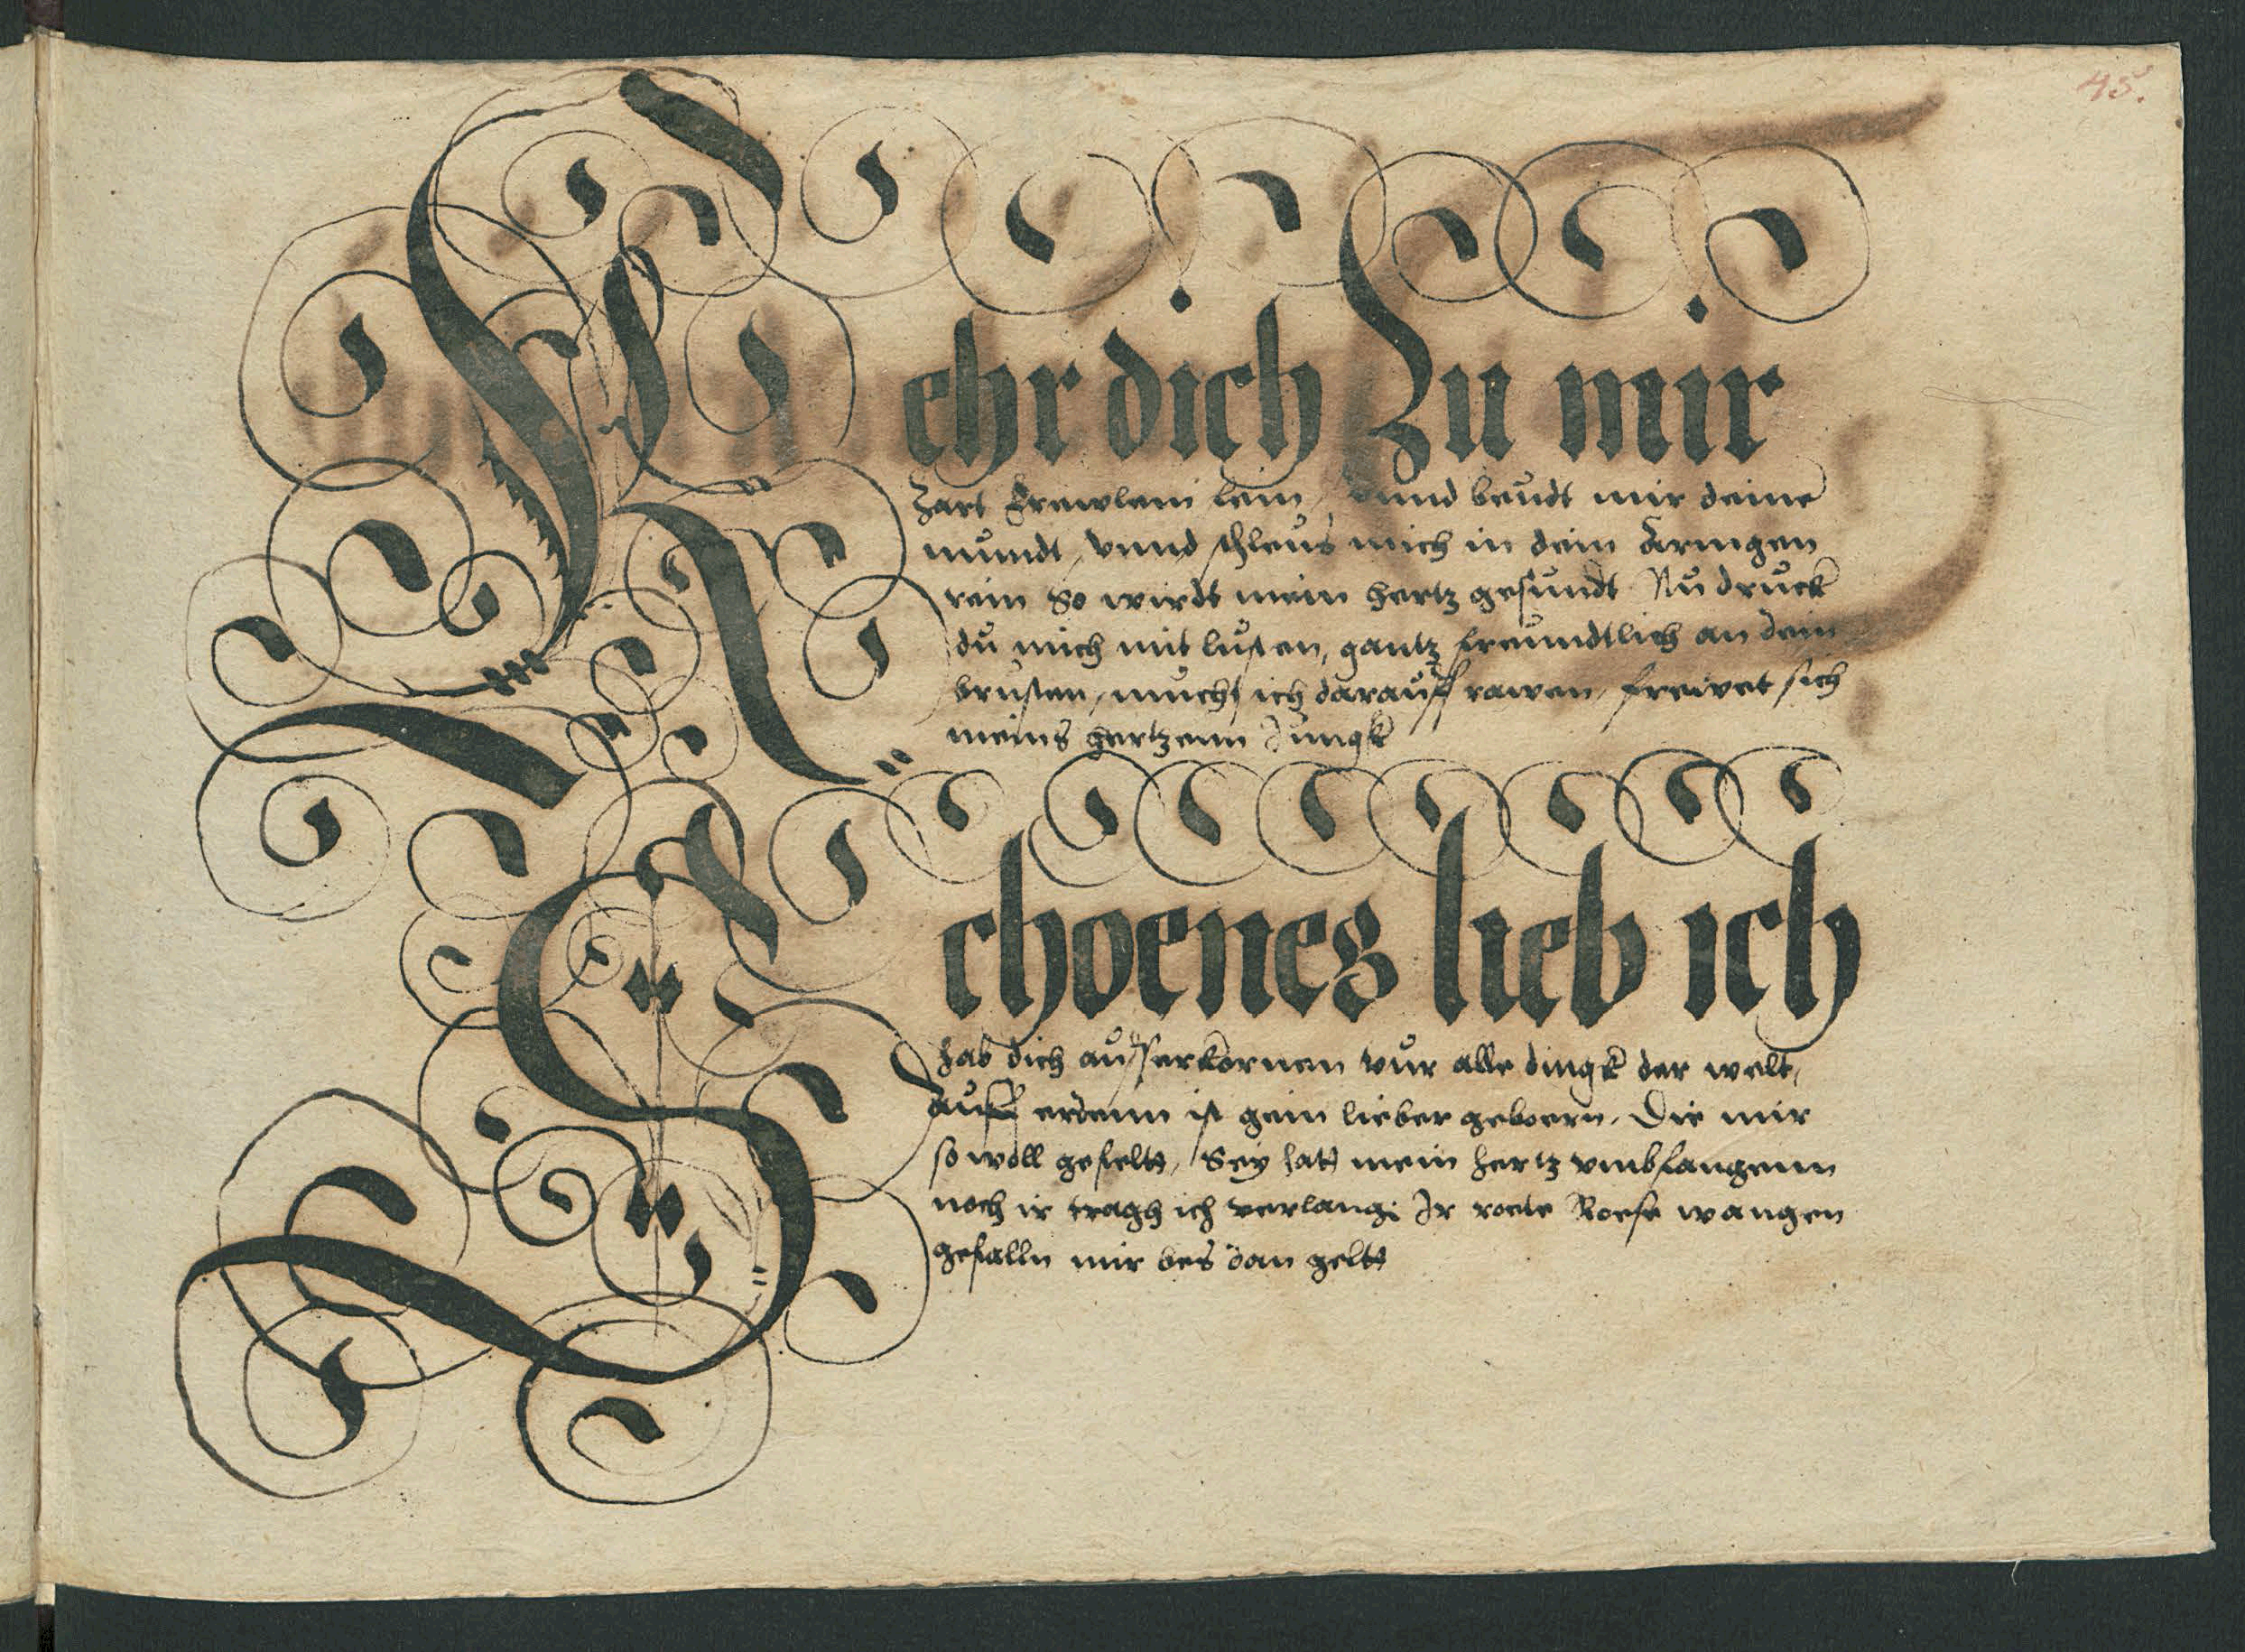 45.
Kehr dich Zu mir
Zart frewlein fein, vnnd beudt mir deine
mundt, vnnd schleus mich in dein Armgen
rein So wirdt mein hertz gesundt Nu druck
du mich mit lusten, gantz freundtlich an dein
brusten, mucht ich darauff rawen, frewet sich
meins hertzenn Jungk
Schoenes lieb ich
hab dich ausserkornen vur alle dingk der welt,
Auff erdenn ist gein lieber geboern. Die mir
so woll gefeltt, Sey hatt mein hertz vmbfangenn
noch ir tragh ich verlang: Ir roete Roese wangen
gefalln mir bes dan geltt